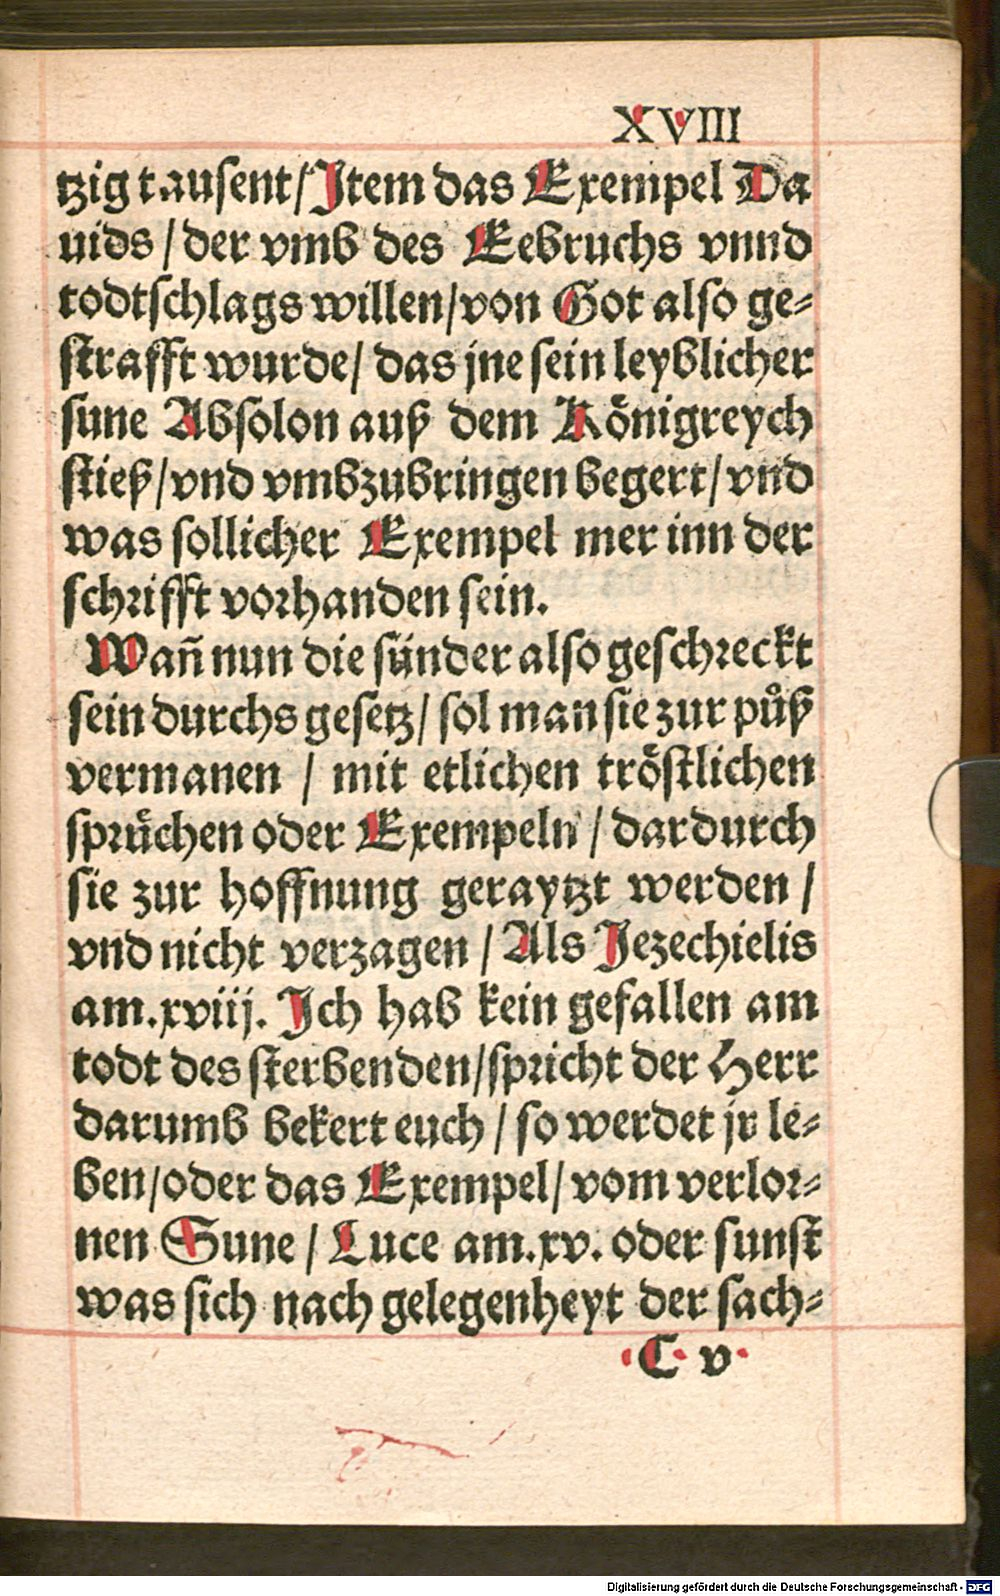 XVIII
tzig tausent/ Jtem das Exempel Da
uids / der vmb des Eebruchs vnnd
todtschlags willen/von Got also ge⸗
strafft wurde/ das jne sein leyblicher
sune Absolon auß dem Königreych
stieß/vnd vmbzubringen begert/vnd
was sollicher Exempel mer inn der
schrifft vorhanden sein.
Wañ nun die sünder also geschreckt
sein durchs gesetz/ sol man sie zur půß
vermanen / mit etlichen tröstlichen
sprüchen oder Exempeln / dardurch
sie zur hoffnung geraytzt werden /
vnd nicht verzagen / Als Jezechielis
am.xviij. Jch hab kein gefallen am
todt des sterbenden/spricht der Herr
darumb bekert euch / so werdet jr le⸗
ben/oder das Exempel/ vom verlor⸗
nen Sune / Luce am.xv. oder sunst
was sich nach gelegenheyt der sach⸗
C v
Digitalisierung gefördert durch die Deutsche Forschungsgemeinschaft - DFG